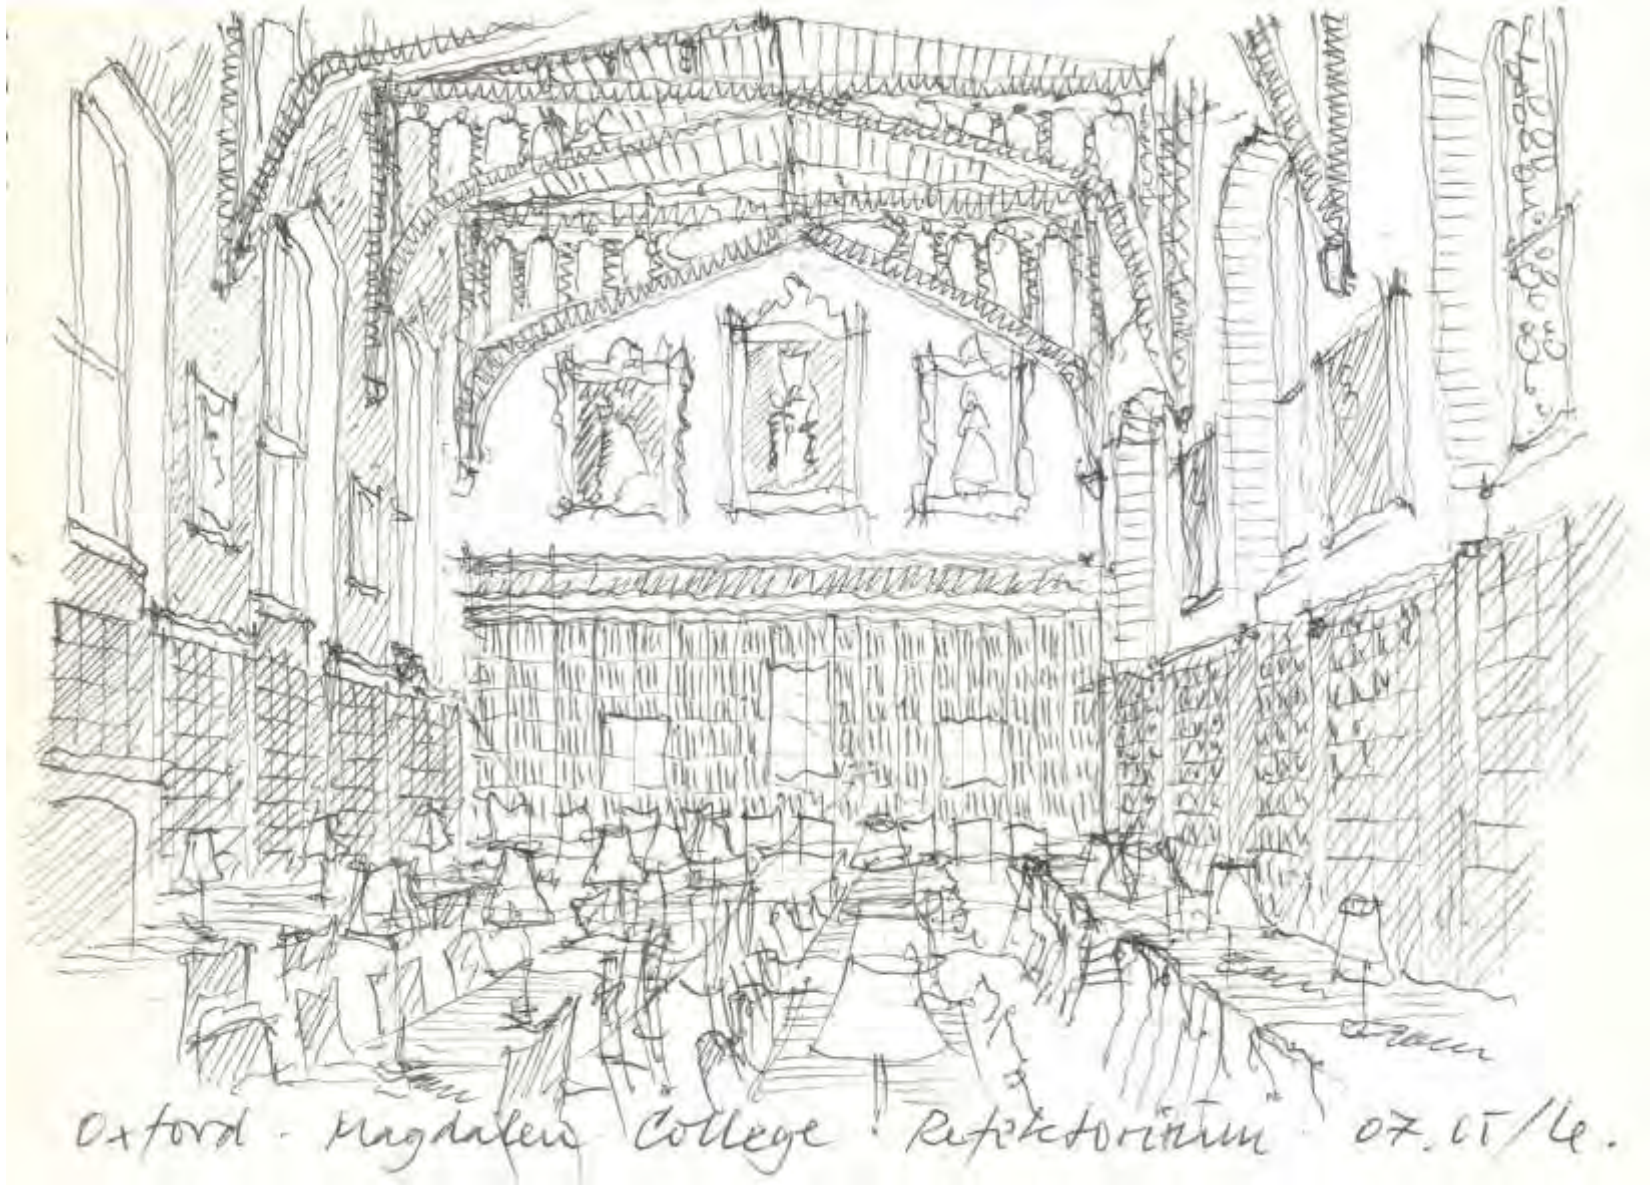 Oxford. Magdalen College. Refektorium 07.